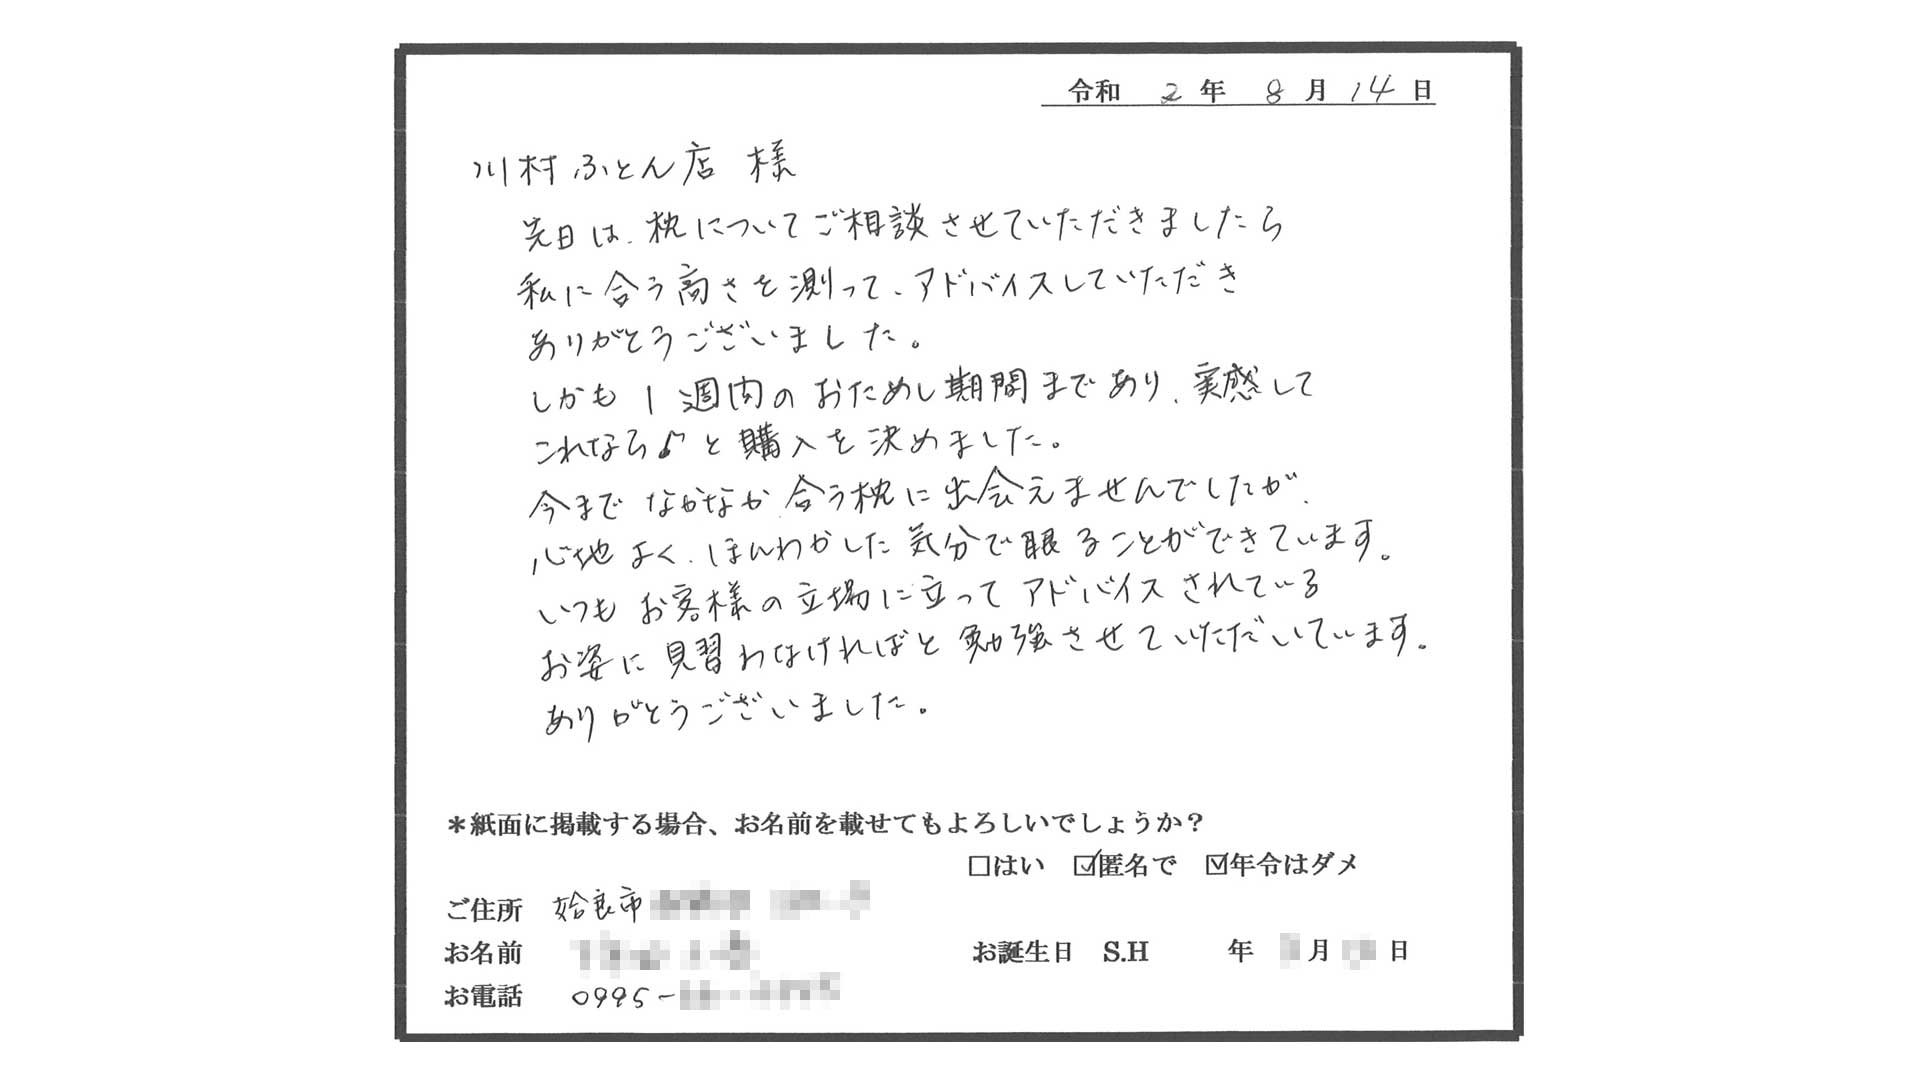 令和 2 年 8 月 14 日
川村ふとん店 様
先日は、枕についてご相談させていただきましたら
私に合う高さを測って、アドバイスしていただき
ありがとうございました。
しかも 1 週間のおためし期間まであり、実感して
これなら♪と購入を決めました。
今まで なかなか 合う枕に出会えませんでしたが、
心地よく、ほんわかした気分で眠ることができています。
いつも お客様の立場に立って アドバイスされている
お姿に 見習わなければと 勉強させていただいています。
ありがとうございました。
*紙面に掲載する場合、お名前を載せてもよろしいでしょうか?
□はい ☑匿名で ☑年令はダメ
ご住所 姶良市
お名前 お誕生日 S.H 年 月 日
お電話 0995-